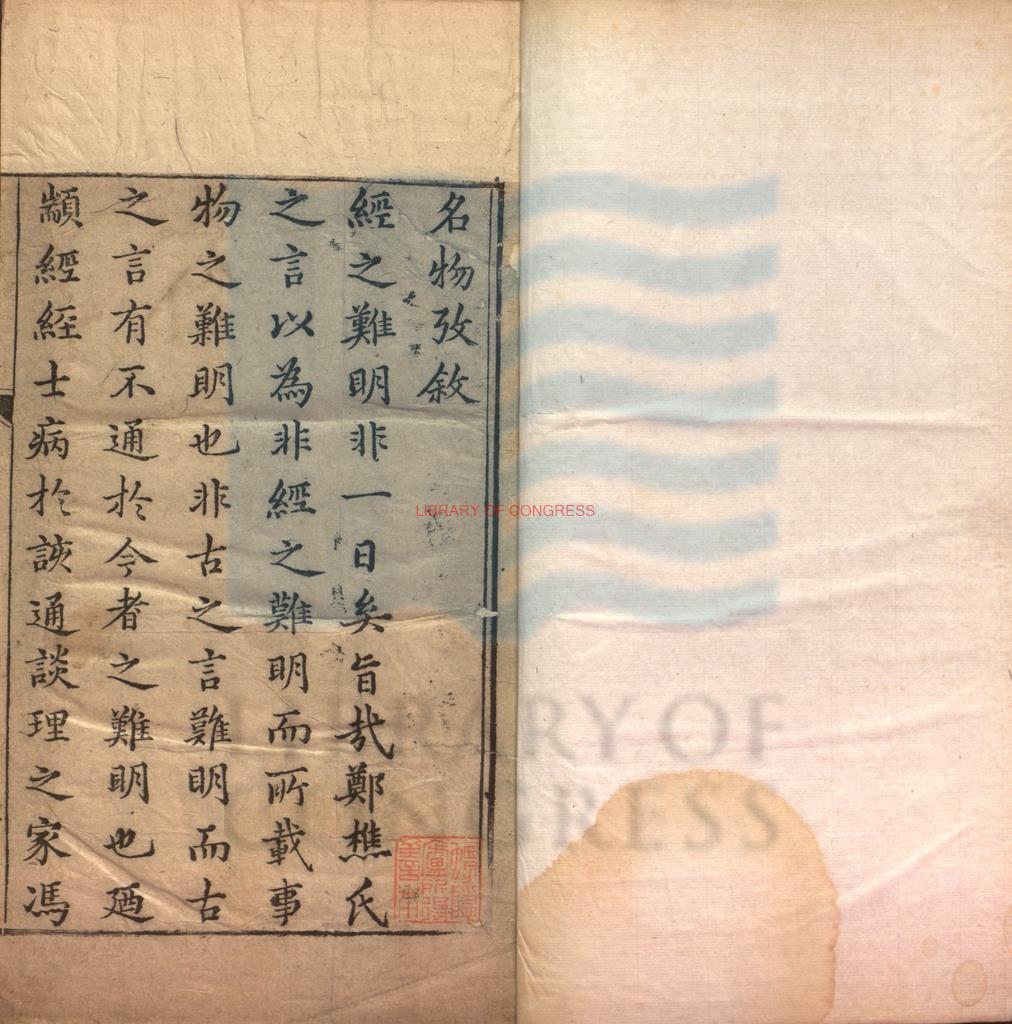 名物攷敘
經之難明非一日矣旨哉鄭樵氏
之言以為非經之難明而所載事
物之難明也非古之言難明而古
之言有不通於今者之難明也廼
顓經經士病於該通談理之家馮
LIBRARY OF CONGRESS
LIBRARY OF
CONGRESS